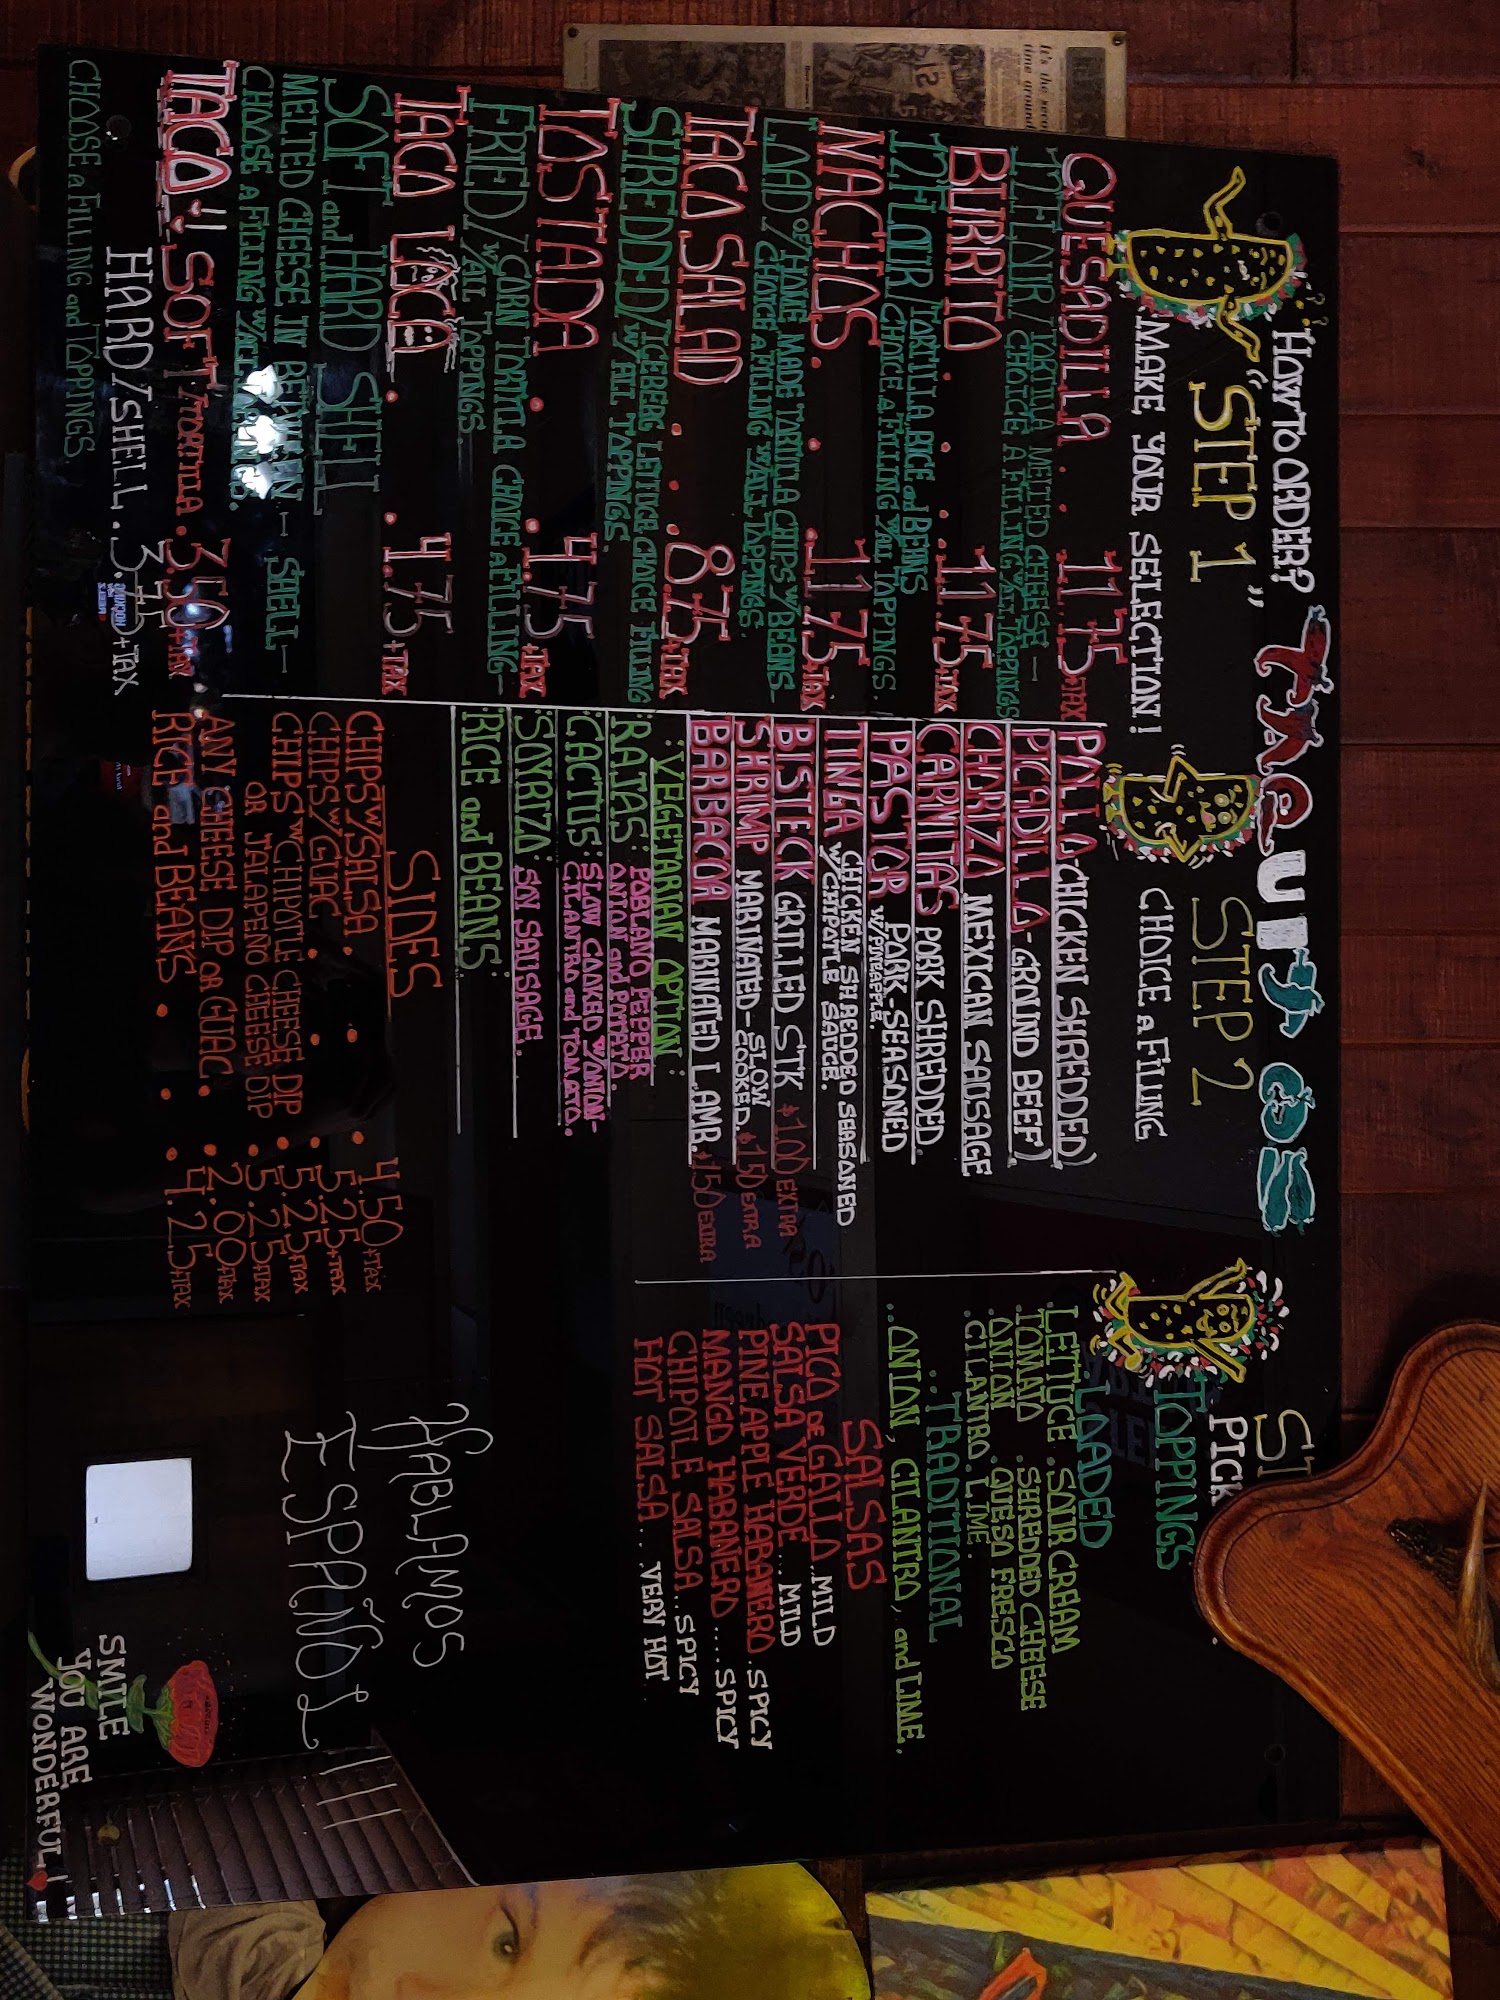 It's the second
time ground
How TO ORDER? TAQUITOS
"STEP 1"
MAKE YOUR SELECTION!
QUESADILLA . . 11.75+TAX
12"FLOUR/TORTILLA MELTED CHEESE—
CHOICE A FILLING W/ALL TOPPINGS
BURRITO . . . 11.75+TAX
12"FLOUR/TORTILLA, RICE and BEANS
CHOICE A FILLING W/ALL TOPPINGS.
NACHOS . . . 11.75+TAX
LOAD OF HOME MADE TORTILLA CHIPS W/BEANS
CHOICE A FILLING W/ALL TOPPINGS.
TACO SALAD . . . 8.75+TAX
SHREDDED/ICEBERG LETTUCE CHOICE FILLING
W/ALL TOPPINGS.
TOSTADA . . 4.75+TAX
FRIED/CORN TORTILLA CHOICE A FILLING—
W/ALL TOPPINGS.
TACO LOCO . . 4.75+TAX
SOFT and HARD SHELL
MELTED CHEESE IN BETWEEN — SHELL—
CHOOSE A FILLING W/ALL TOPPINGS.
TACO SOFT/TORTILLA . 3.50+TAX
HARD/SHELL . 3.75+TAX
CHOOSE a FILLING and TOPPINGS.
STEP 2
CHOICE a FILLING
POLLO-CHICKEN SHREDDED)
PICADILLO-GROUND BEEF)
CHORIZO MEXICAN SAUSAGE
CARNITAS PORK SHREDDED.
PASTOR PORK-SEASONED
W/PINEAPPLE.
TINGA CHICKEN SHREDDED SEASONED
W/CHIPOTLE SAUCE.
BISTECK GRILLED STK $1.00 EXTRA
SHRIMP MARINATED-SLOW COOKED. $1.50 EXTRA
BARBACOA MARINATED LAMB. $1.50 EXTRA
:VEGETARIAN OPTION:
:RAJAS: POBLANO PEPPER
ONION and POTATO.
:CACTUS: SLOW COOKED W/ONION-
CILANTRO and TOMATO.
:SOYRIZO: SOY SAUSAGE.
:RICE and BEANS:
SIDES
CHIPS W/SALSA . . 4.50+TAX
CHIPS W/GUAC . . . 5.25+TAX
CHIPS W/CHIPOTLE CHEESE DIP . 5.25+TAX
OR JALAPENO CHEESE DIP . 5.25+TAX
ANY CHEESE DIP OR GUAC . . 2.00+TAX
RICE and BEANS . . . 4.25+TAX
ST
PICK
TOPPINGS
LOADED
.LETTUCE .SOUR CREAM
.TOMATO .SHREDDED CHEESE
.ONION .QUESO FRESCO
.CILANTRO .LIME.
..TRADITIONAL
..ONION, CILANTRO, and LIME.
SALSAS
PICO DE GALLO..MILD
SALSA VERDE...MILD
PINEAPPLE HABANERO.SPICY
MANGO HABANERO....SPICY
CHIPOTLE SALSA...SPICY
HOT SALSA....VERY HOT
HABLAMOS
ESPAÑOL !!!
SMILE
YOU ARE
WONDERFUL!